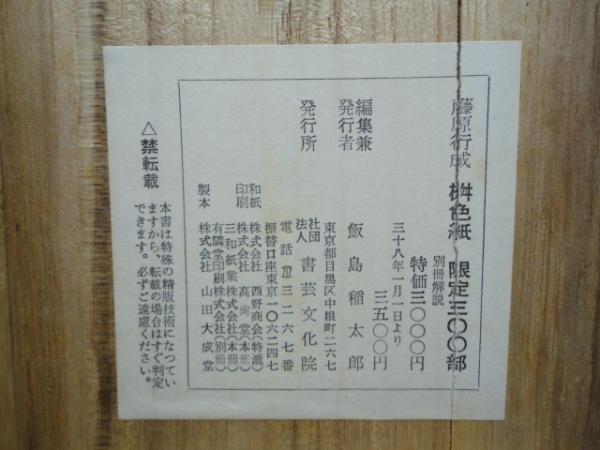 藤原行成 桝色紙 限定三〇〇部
別冊解説
特価三〇〇〇円
三十八年一月一日より
三五〇〇円
編集兼
発行者
飯島稲太郎
東京都目黒区中根町二六七
発行所
社団
法人
書芸文化院
電話(717)三二六七番
振替口座東京一〇六二四七
和紙
株式会社 西野商会(特漉)
印刷
株式会社 高尚堂(本冊)
三和紙業株式会社(本冊)
有隣堂印刷株式会社(別冊)
製本
株式会社 山田大成堂
△禁転載
本書は特殊の精版技術になつてい
ますから、転載の場合はすぐ判定
できます。必ずご遠慮ください。